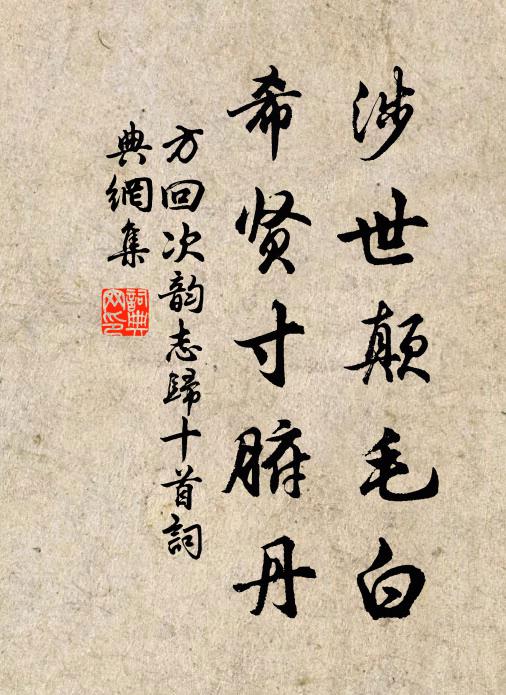 涉世颠毛白
希贤寸腑丹
方回次韵志歸十首詞
典網集
詞典網印